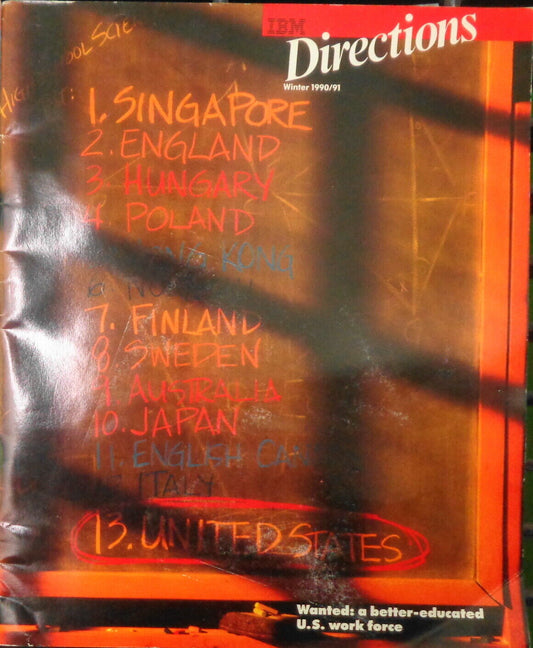 IBM
Directions
Winter 1990/91
1. SINGAPORE
2. ENGLAND
3 HUNGARY
4 POLAND
KONG
7. FINLAND
8 SWEDEN
9 AUSTRALIA
10. JAPAN
11. ENGLISH
ITALY
13. UNITED STATES
Wanted: a better-educated
U.S. work force